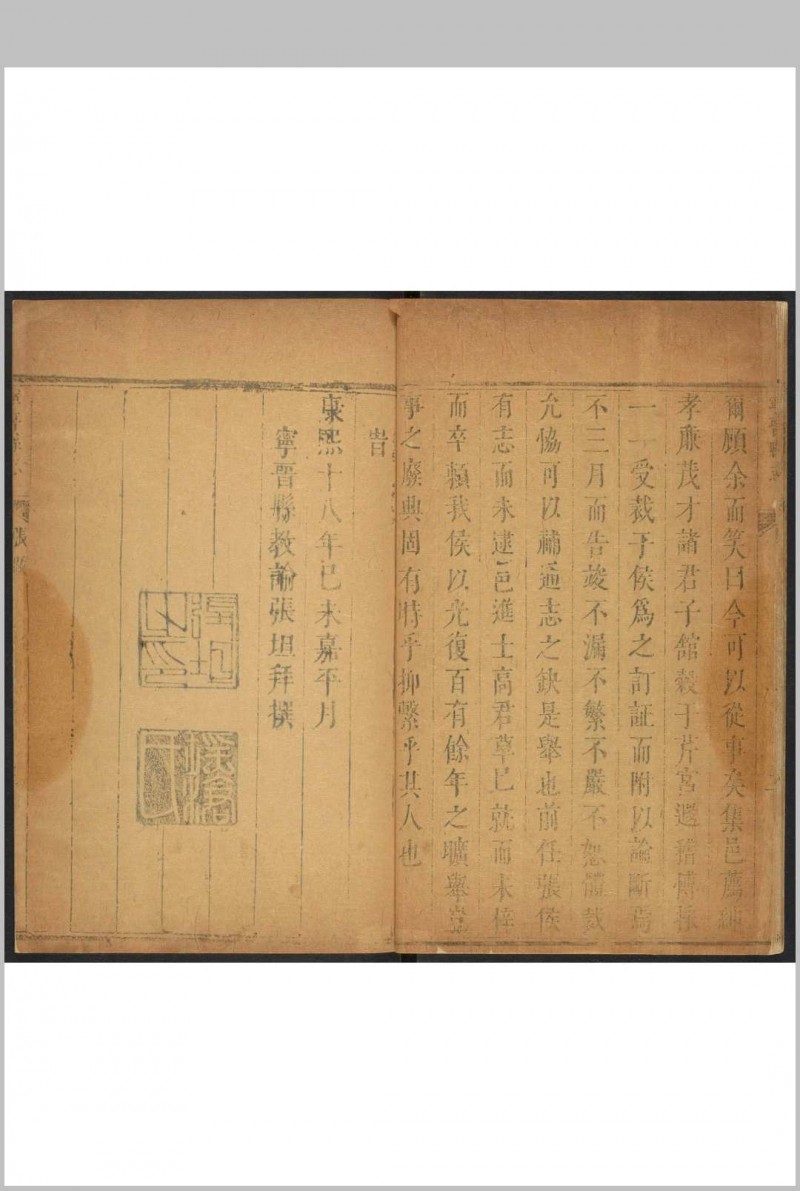 爾顧余而笑曰今可以從事矣集邑薦紳
孝廉茂才諸君子館穀于芹宮遐稽博採
一一受裁于侯為之訂証而附以論斷焉
不三月而告竣不漏不繁不嚴不恕體裁
允恊可以補通志之缺是舉也前任張侯
有志而未逮邑進士高君草已就而未梓
而卒賴我侯以光復百有餘年之曠舉豈
事之廢興固有時乎抑繫乎其人也
旹
康熙十八年己未嘉平月
寧晉縣教諭張坦拜撰
張坦之印